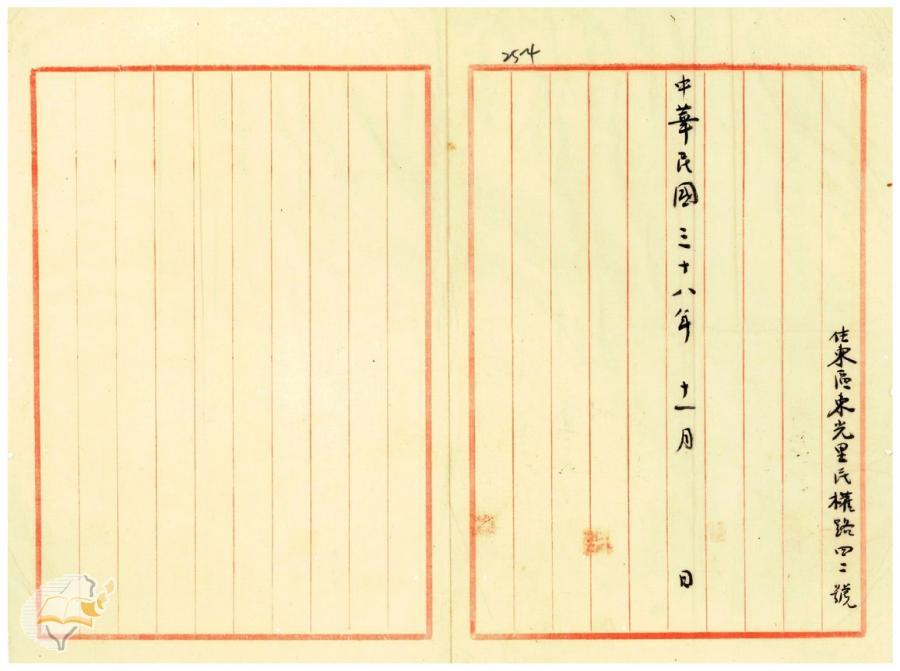 254
住東區東光里民權路四二號
中華民國三十八年 十一月 日